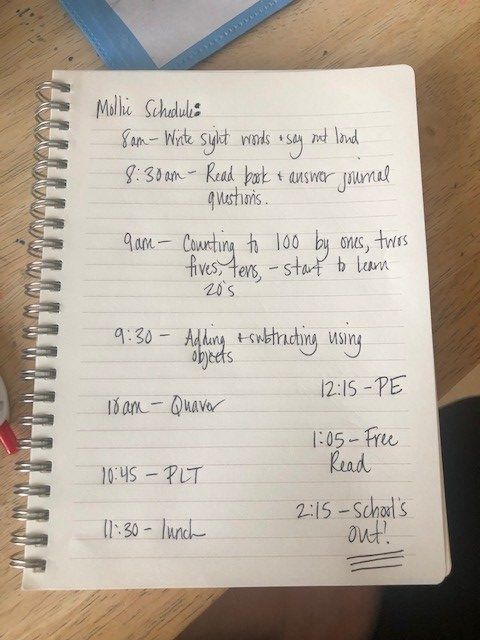 Mollie Schedule:
8am - Write sight words + say out loud
8:30am - Read book + answer journal
questions.
9am - Counting to 100 by ones, twos
fives, tens, - start to learn
20's
9:30 - Adding + subtracting using
objects
10am - Quaver
10:45 - PLT
11:30 - lunch
12:15 - PE
1:05 - Free
Read
2:15 - School's
out!